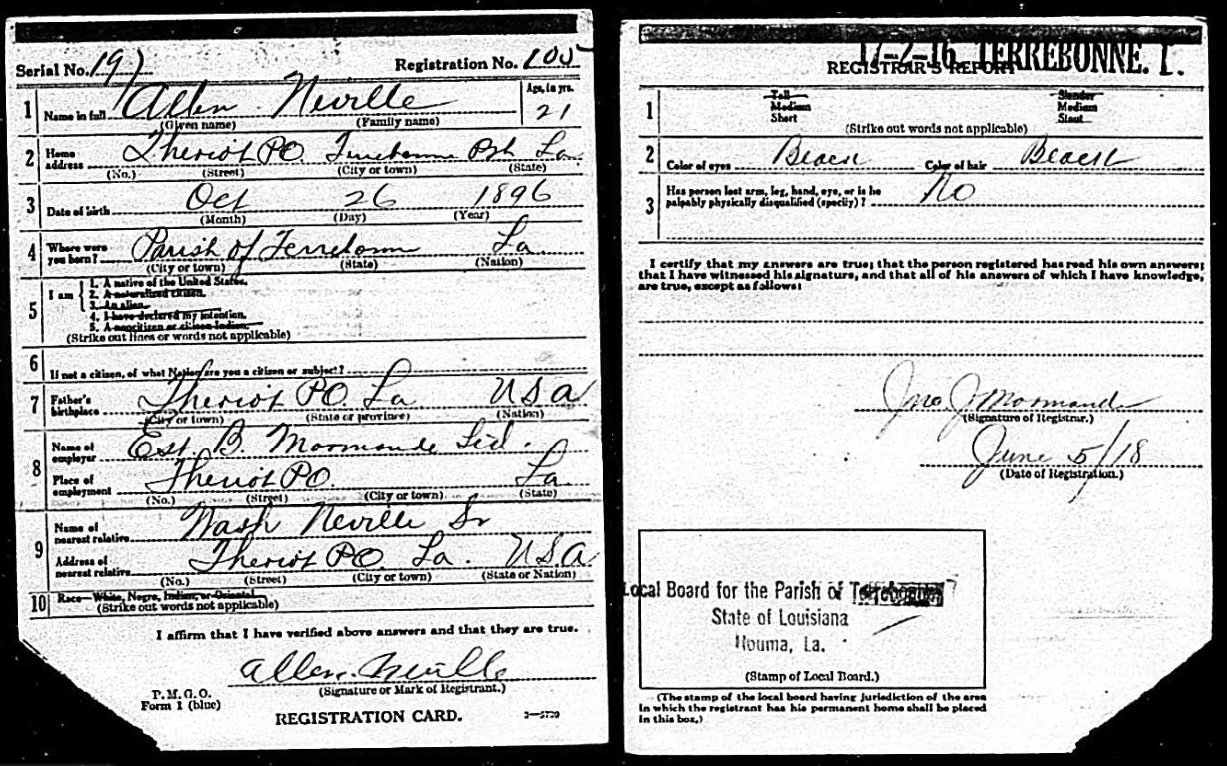 Serial No. 197 Registration No. 105
1 Name in full Allen Neville Age, in yrs. 21
(Given name) (Family name)
2 Home address Theriot PO Terrebonne Psh La
(No.) (Street) (City or town) (State)
3 Date of birth Oct 26 1896
(Month) (Day) (Year)
4 Where were you born? Parish of Terrebonne La
(City or town) (State) (Nation)
5 I am 1. A native of the United States.
2. A naturalized citizen.
3. An alien.
4. I have declared my intention.
5. A noncitizen or citizen Indian.
(Strike out lines or words not applicable)
6 If not a citizen, of what Nation are you a citizen or subject?
7 Father's birthplace Theriot PO La USA
(City or town) (State or province) (Nation)
8 Name of employer Est B. Marmande Ltd.
Place of employment Theriot PO La
(No.) (Street) (City or town) (State)
9 Name of nearest relative Wash Neville Sr
Address of nearest relative Theriot PO La. USA
(No.) (Street) (City or town) (State or Nation)
10 Race—White, Negro, Indian, or Oriental
(Strike out words not applicable)
I affirm that I have verified above answers and that they are true.
Allen Neville
(Signature or Mark of Registrant.)
P. M. G. O.
Form 1 (blue)
REGISTRATION CARD.
17-2-16 TERREBONNE.
REGISTRAR'S REPORT
1 Tall Slender
Medium Medium
Short Stout
(Strike out words not applicable)
2 Color of eyes Black Color of hair Black
3 Has person lost arm, leg, hand, eye, or is he
palpably physically disqualified (specify)? No
I certify that my answers are true; that the person registered has read his own answers;
that I have witnessed his signature, and that all of his answers of which I have knowledge,
are true, except as follows:
Jno J Marmande
(Signature of Registrar.)
June 5/18
(Date of Registration.)
Local Board for the Parish of Terrebonne
State of Louisiana
Houma, La.
(Stamp of Local Board.)
(The stamp of the local board having jurisdiction of the area
in which the registrant has his permanent home shall be placed
in this box.)